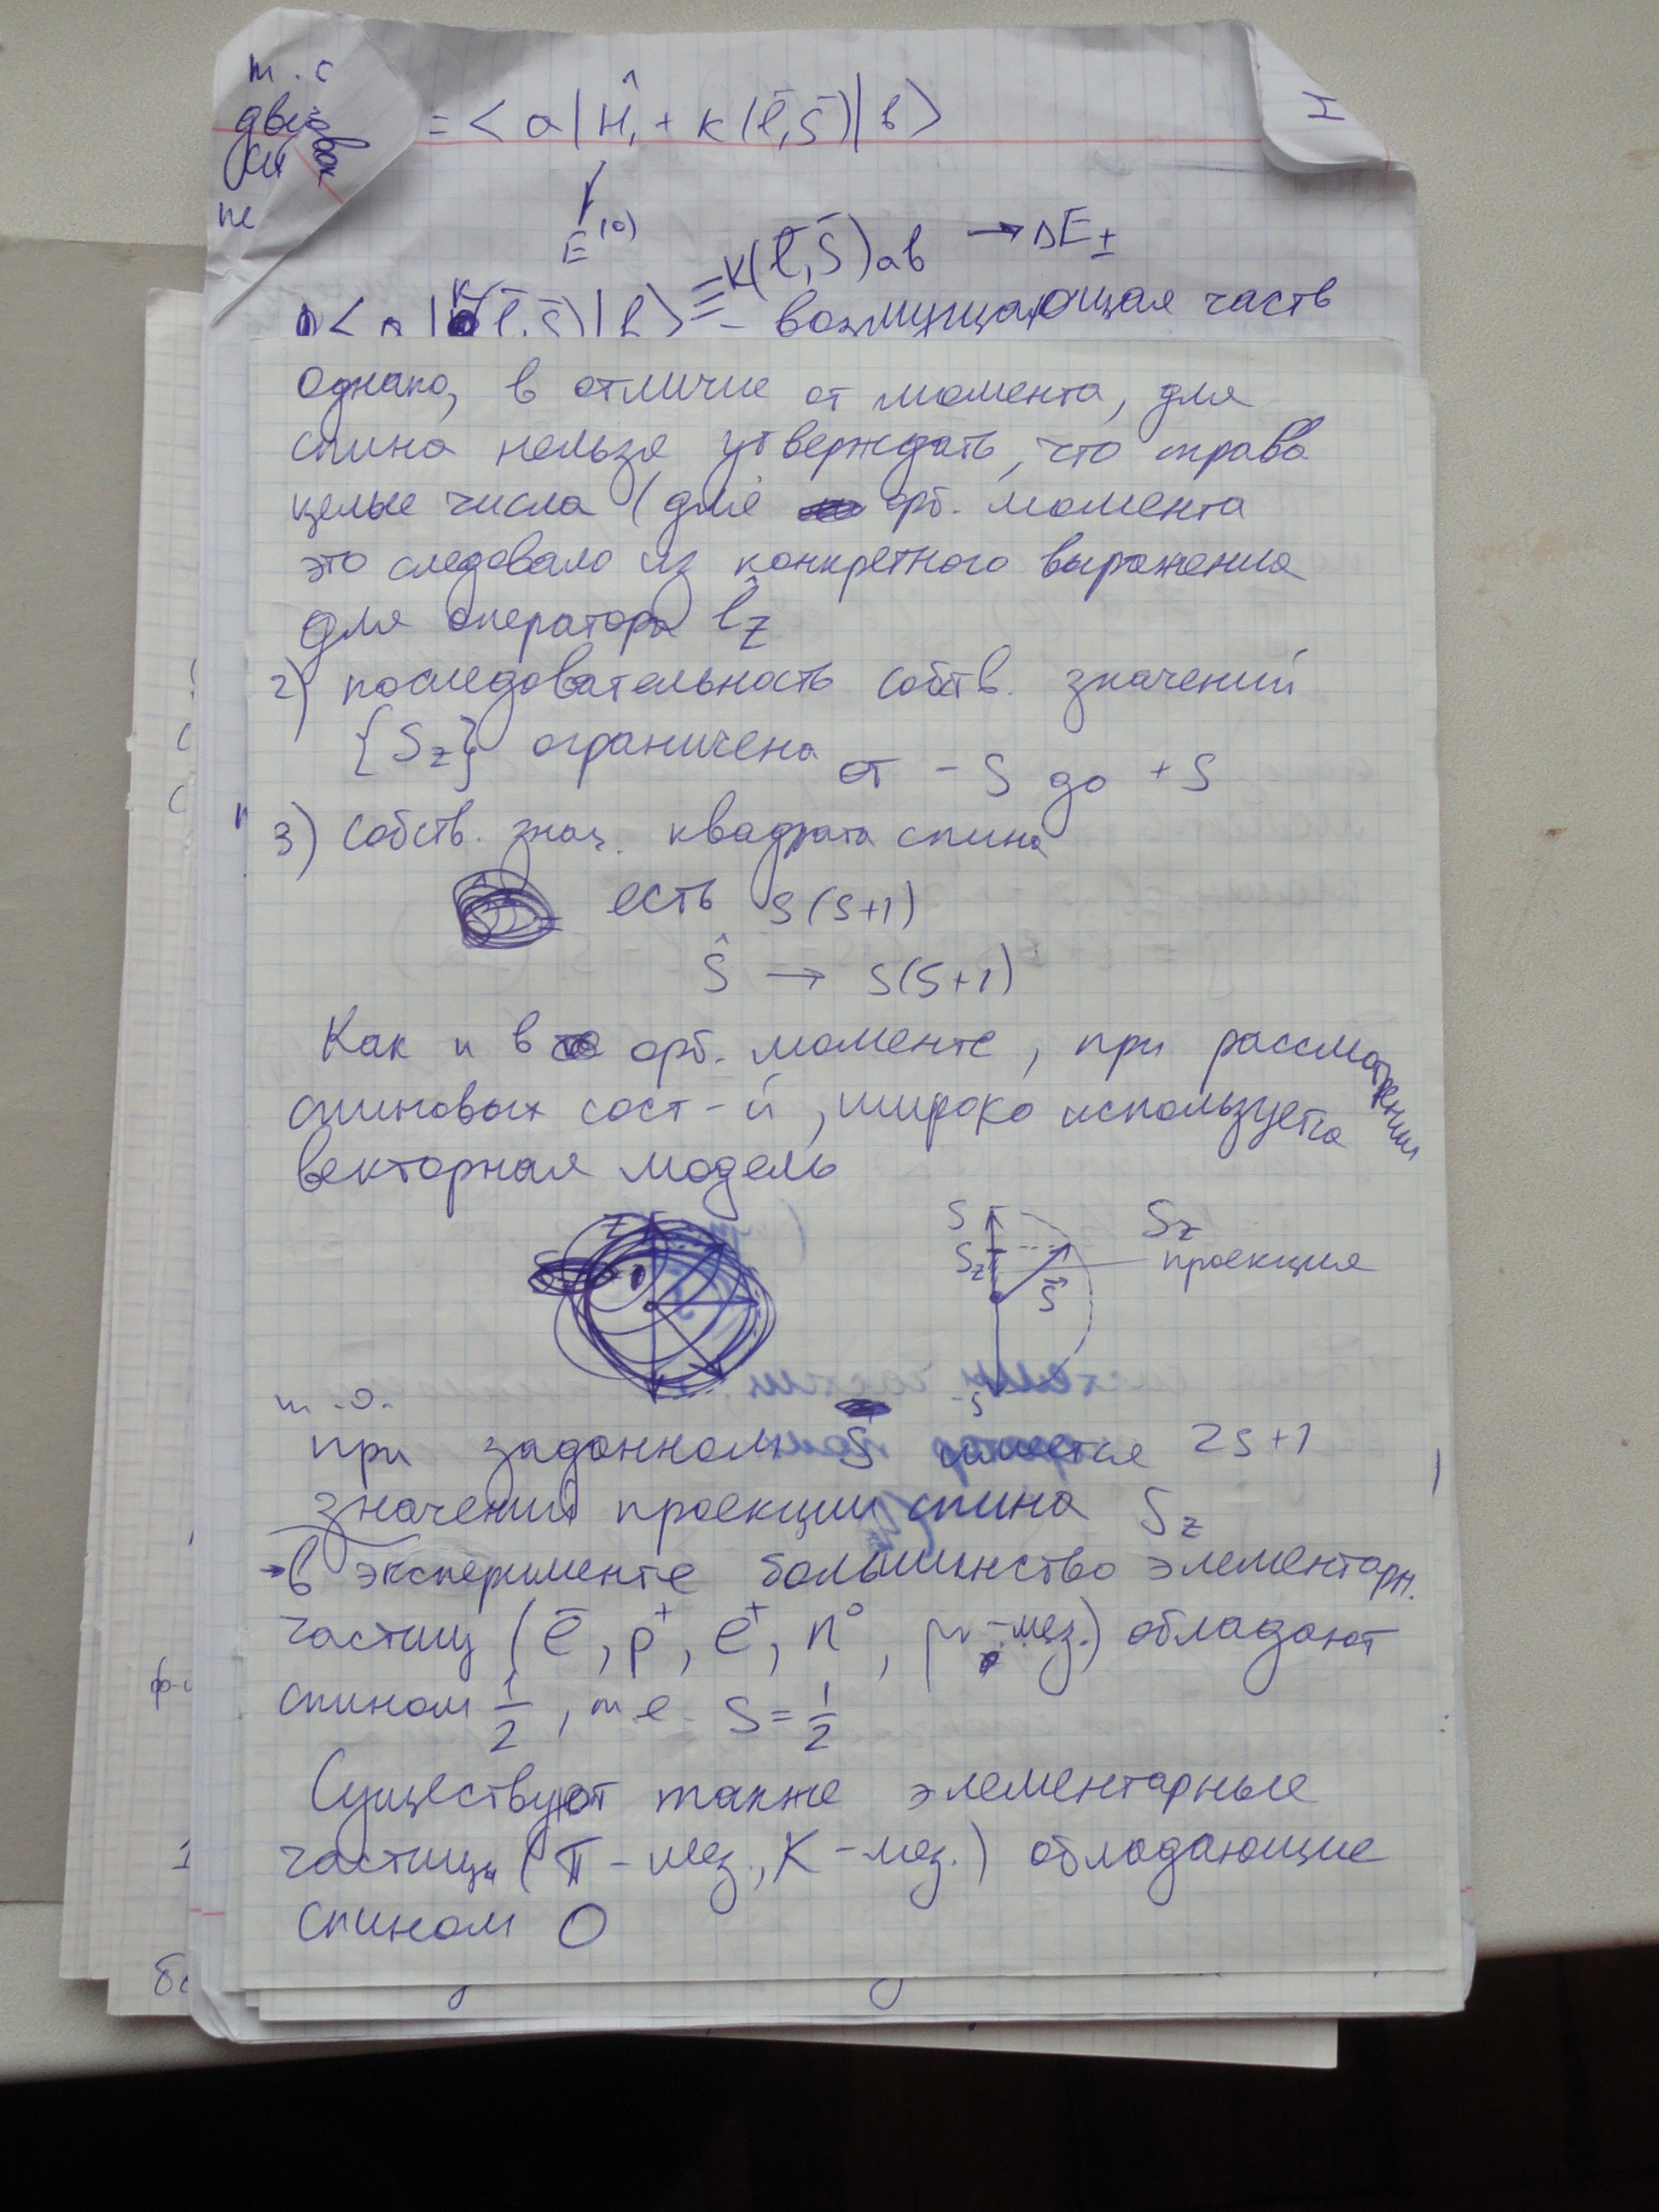 т.с
= < a | Ĥ₁ + к(l̄,s̄) | b >
I
E⁽⁰⁾
не
≡ к(l̄,s̄)ab → ΔE±
- возмущающая часть
Однако, в отличие от момента, для
спина нельзя утверждать, что
целые числа (для орб. момента
это следовало из конкретного выражения
для оператора l̂z
2) последовательность собств. значений
{Sz} ограничена от -S до +S
3) Собств. знач. квадрата спина
есть s(s+1)
Ŝ → s(s+1)
Как и в орб. моменте, при рассмотрении
спиновых сост-й, широко используется
векторная модель
S
Sz
Sz
проекция
s⃗
-S
т.о.
при заданном S имеется 2s+1
значений проекции спина Sz
→ В эксперименте большинство элементарн.
частиц (e⁻, p⁺, e⁺, n⁰, μ-мез.) обладают
спином 1/2, т.е. S = 1/2
Существуют также элементарные
частицы (π-мез., K-мез.) обладающие
спином 0